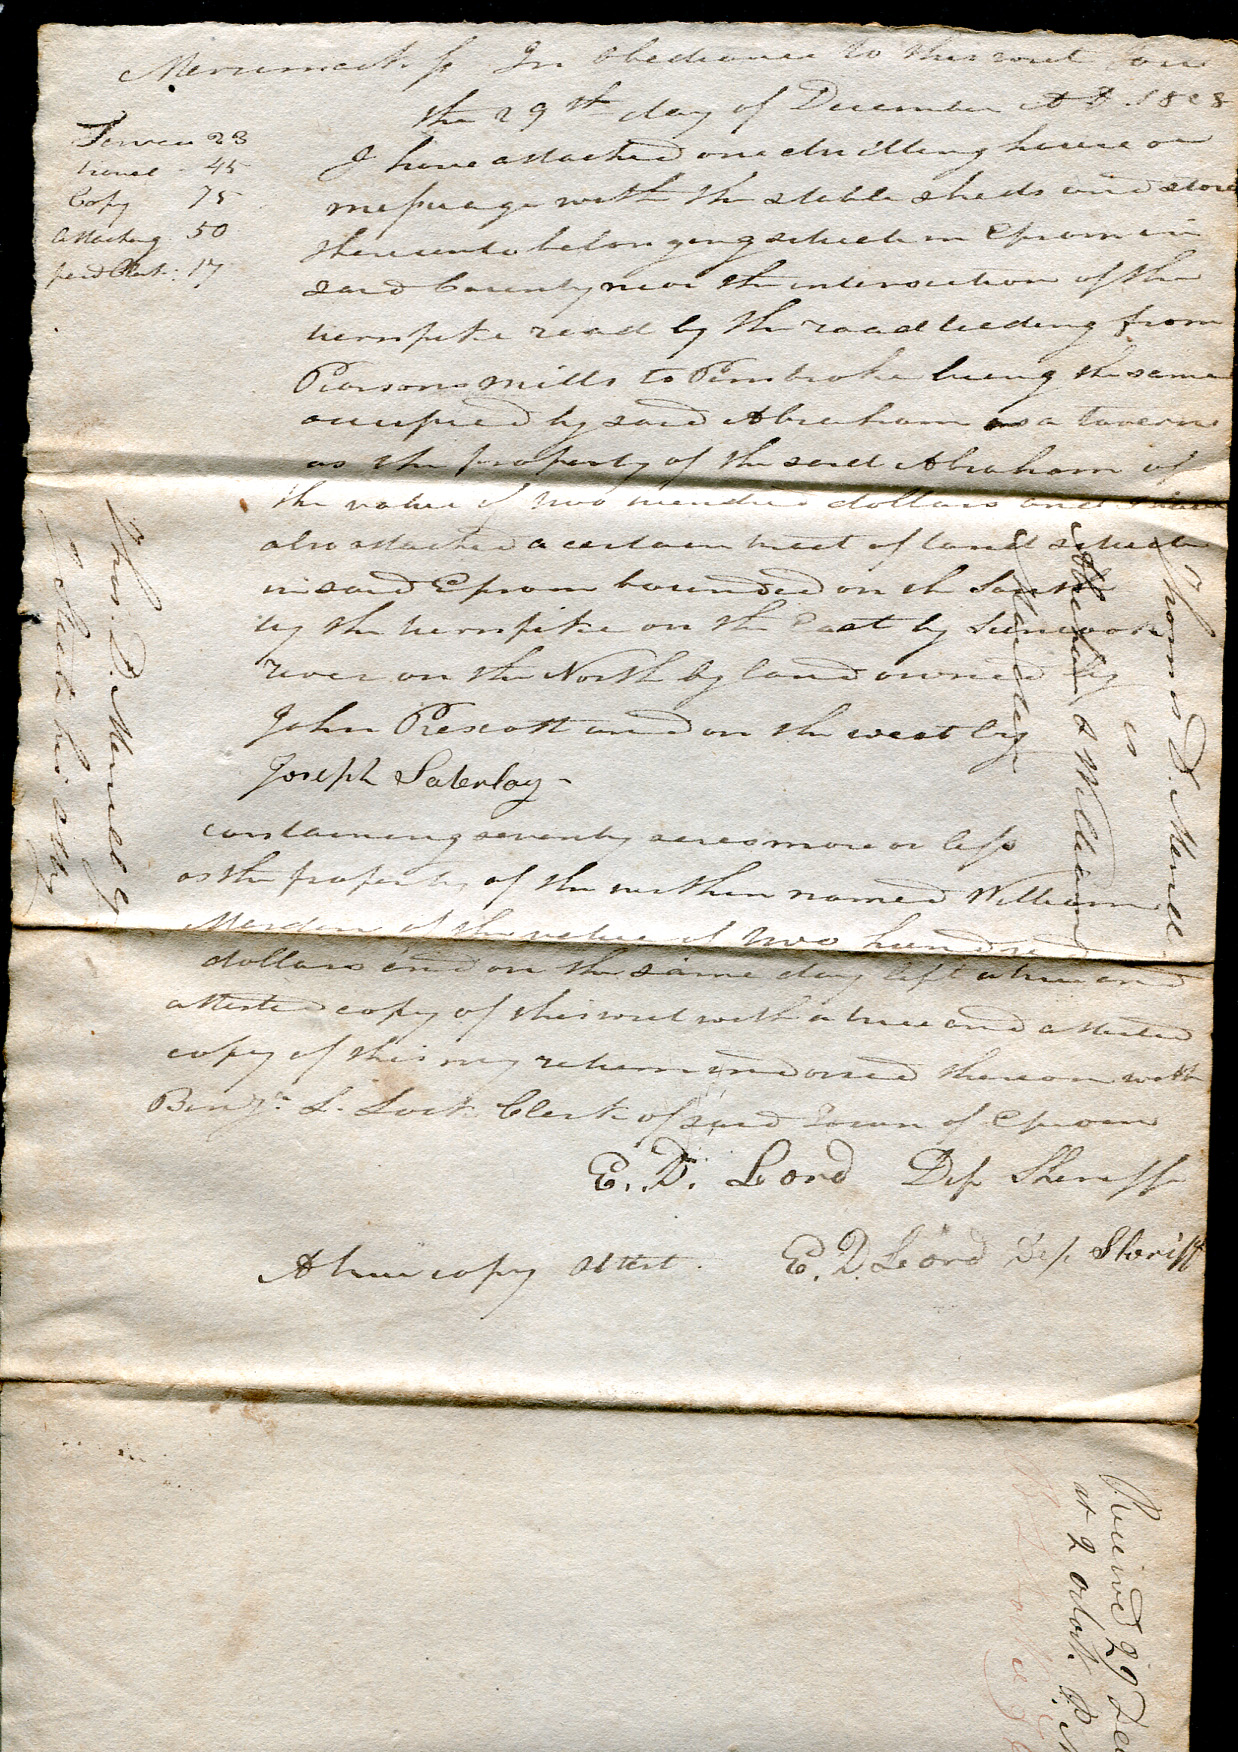 Merrimack ss In obedience to this writ on
the 29th day of December A D. 1828
I have attached one dwelling house or
messuage with the stable sheds and store
thereunto belonging situate in Epsom in
said County near the intersection of the
turnpike road by the road leeding from
Pearsons mills to Pembroke being the same
occupied by said Abraham as a tavern
as the property of the said Abraham of
the value of two hundred dollars and have
also attached a certain tract of land situate
in said Epsom bounded on the South
by the turnpike on the East by Suncook
river on the North by land owned by
John Prescott and on the west by
Joseph Saterlay -
containing seventy acres more or less
as the property of the within named William
Marden of the value of two hundred
dollars and on the same day left a true and
attested copy of this writ with a true and attested
copy of this my return indorsed thereon with
Benjn. L. Lock Clerk of said Town of Epsom
E. D. Lord Dep Sheriff
A true copy Attest. E. D. Lord Dep Sheriff
Service 23
travel - 45
Copy 75
attaching 50
paid Clerk: 17
Thos. D. Merrill
his atty
Thomas D. Merrill
vs
Abraham & William
Marden
Received 29 Dec
at 2 oclock P. M